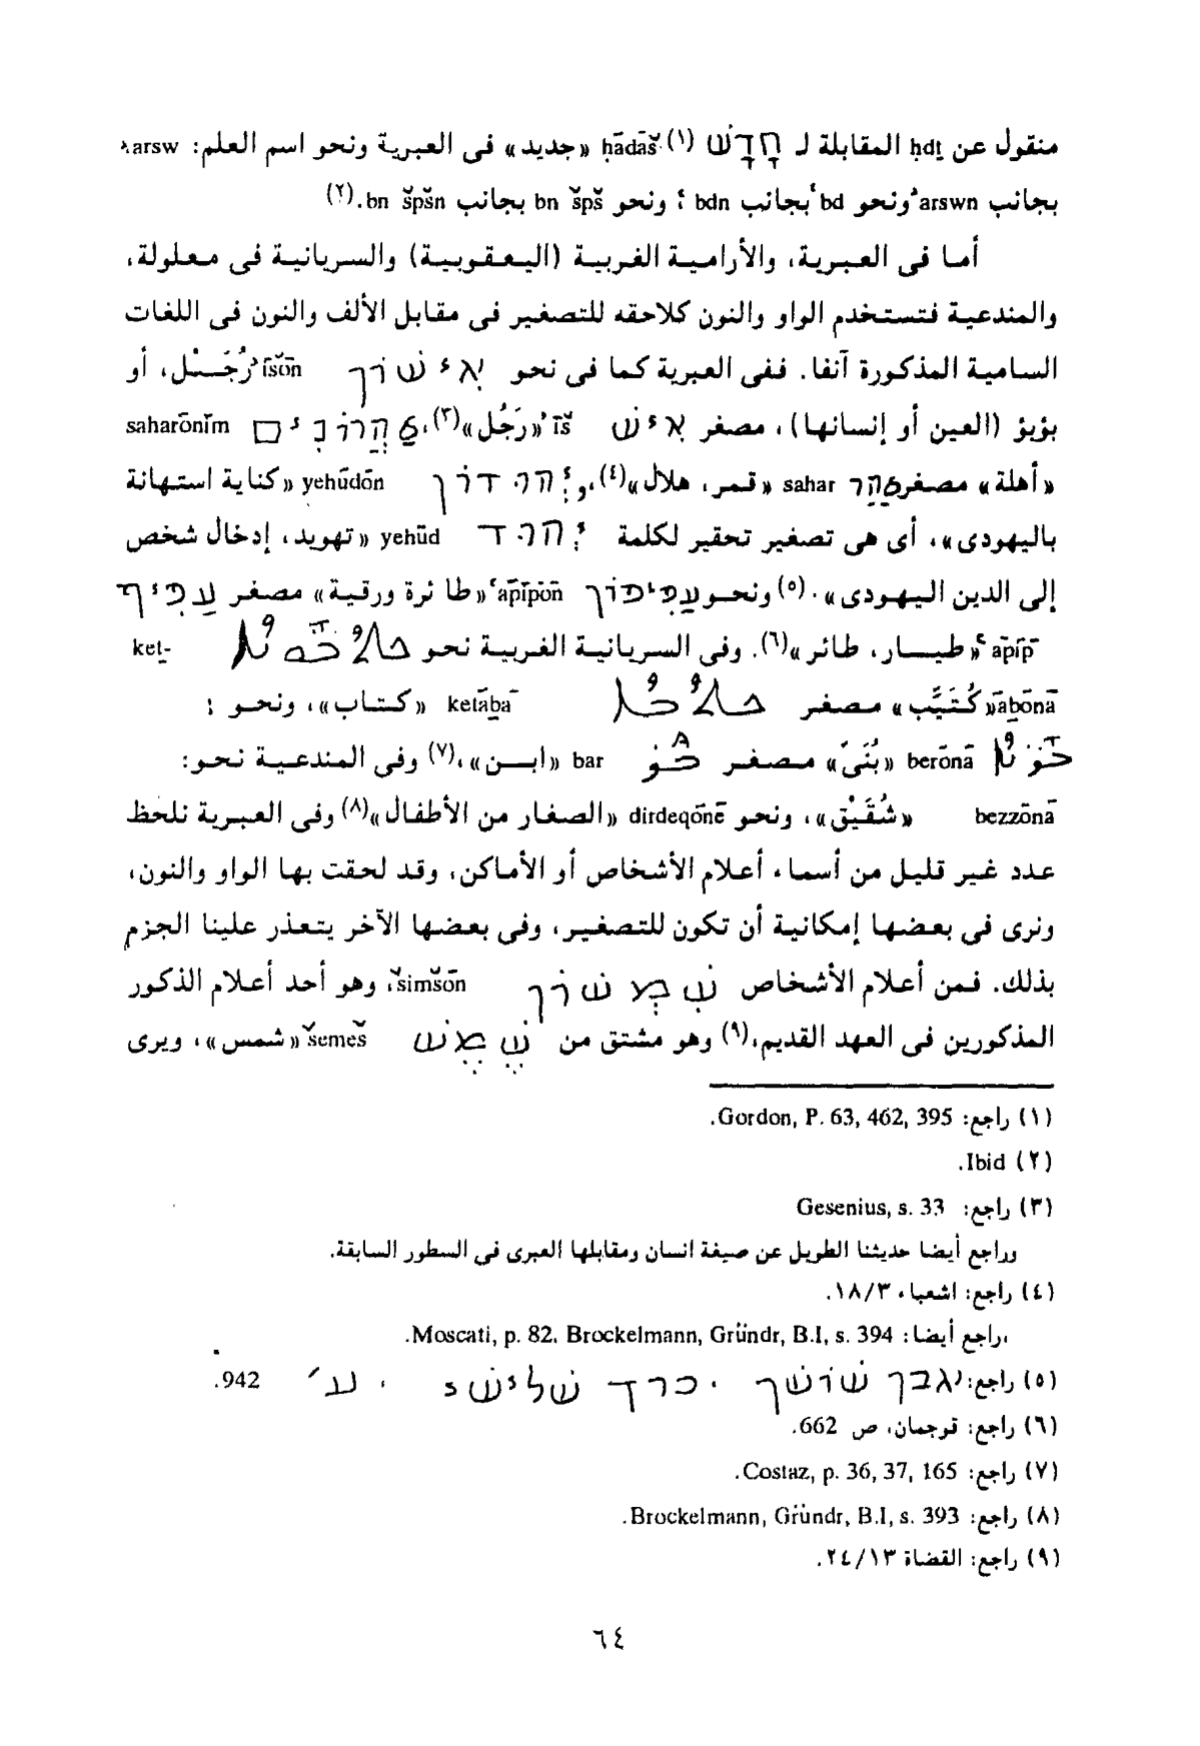 منقول عن ḥdṯ المقابلة لـ חָדָשׁ (١) ḥādāš «جديد» فى العبرية ونحو اسم العلم: arsw
بجانب arswn ونحو bd بجانب bdn ؛ ونحو bn špš بجانب bn špšn.(٢)
أما فى العبرية، والأرامية الغربية (اليعقوبية) والسريانية فى معلولة،
والمندعية فتستخدم الواو والنون كلاحقه للتصغير فى مقابل الألف والنون فى اللغات
السامية المذكورة آنفا. ففى العبرية كما فى نحو אִישׁוֹן ʾīšōn رُجَيْل، أو
بؤبؤ (العين أو إنسانها)، مصغر אִישׁ ʾīš «رَجُل»(٣)، שַׂהֲרוֹנִים saharōnīm
«أهلة» مصغر שַׂהַר sahar «قمر، هلال»(٤)، و יְהוּדוֹן yehūdōn «كناية استهانة
باليهودى»، أى هى تصغير تحقير لكلمة יְהוּד yehūd «تهويد، إدخال شخص
إلى الدين اليهودى».(٥) ونحو עֲפִיפוֹן ʿapīpōn «طائرة ورقية» مصغر עָפִיף
ʿāpīp «طيار، طائر»(٦). وفى السريانية الغربية نحو ܟܬܳܒܽܘܢܳܐ keṯ-
āḇōnā «كُتَيَّب» مصغر ܟܬܳܒܳܐ keṯāḇā «كتاب»، ونحو :
ܒܪܽܘܢܳܐ berōnā «بُنَىّ» مصغر ܒܰܪ bar «ابن»،(٧) وفى المندعية نحو:
bezzōnā «شُقَيْق»، ونحو dirdeqōnē «الصغار من الأطفال»(٨) وفى العبرية نلحظ
عدد غير قليل من أسماء أعلام الأشخاص أو الأماكن، وقد لحقت بها الواو والنون،
ونرى فى بعضها إمكانية أن تكون للتصغير، وفى بعضها الآخر يتعذر علينا الجزم
بذلك. فمن أعلام الأشخاص שִׁמְשׁוֹן šimšōn، وهو أحد أعلام الذكور
المذكورين فى العهد القديم،(٩) وهو مشتق من שֶׁמֶשׁ šemeš «شمس»، ويرى
(١) راجع: Gordon, P. 63, 462, 395.
(٢) Ibid.
(٣) راجع: Gesenius, s. 33
وراجع أيضا حديثنا الطويل عن صيغة انسان ومقابلها العبرى فى السطور السابقة.
(٤) راجع: اشعياء ١٨/٣.
وراجع أيضا: Moscati, p. 82, Brockelmann, Gründr, B.I, s. 394.
(٥) راجع: אבן שושן . כרך שלישי , עמ׳ 942.
(٦) راجع: قوجمان، ص 662.
(٧) راجع: Costaz, p. 36, 37, 165.
(٨) راجع: Brockelmann, Gründr, B.I, s. 393.
(٩) راجع: القضاة ٢٤/١٣.
٦٤